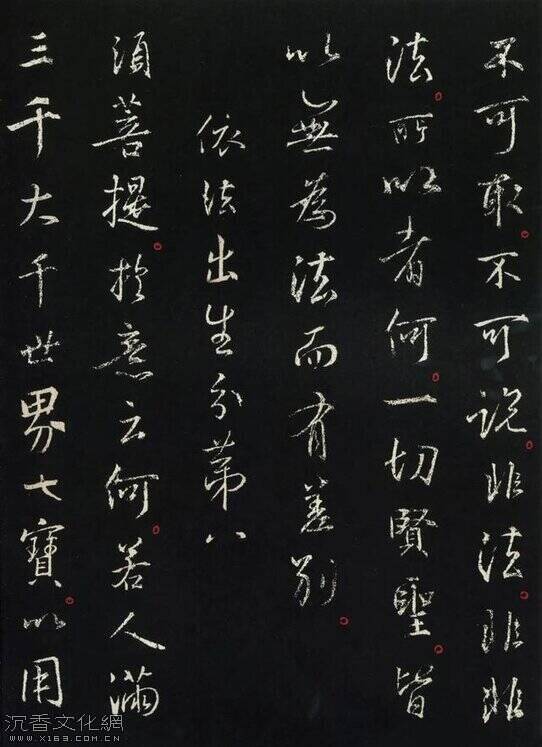 不可取。不可說。非法。非非
法。所以者何。一切賢聖。皆
以無為法而有差別。
依法出生分第八
須菩提。於意云何。若人滿
三千大千世界七寶。以用
沉香文化網
WWW.X1S3.COM.CN